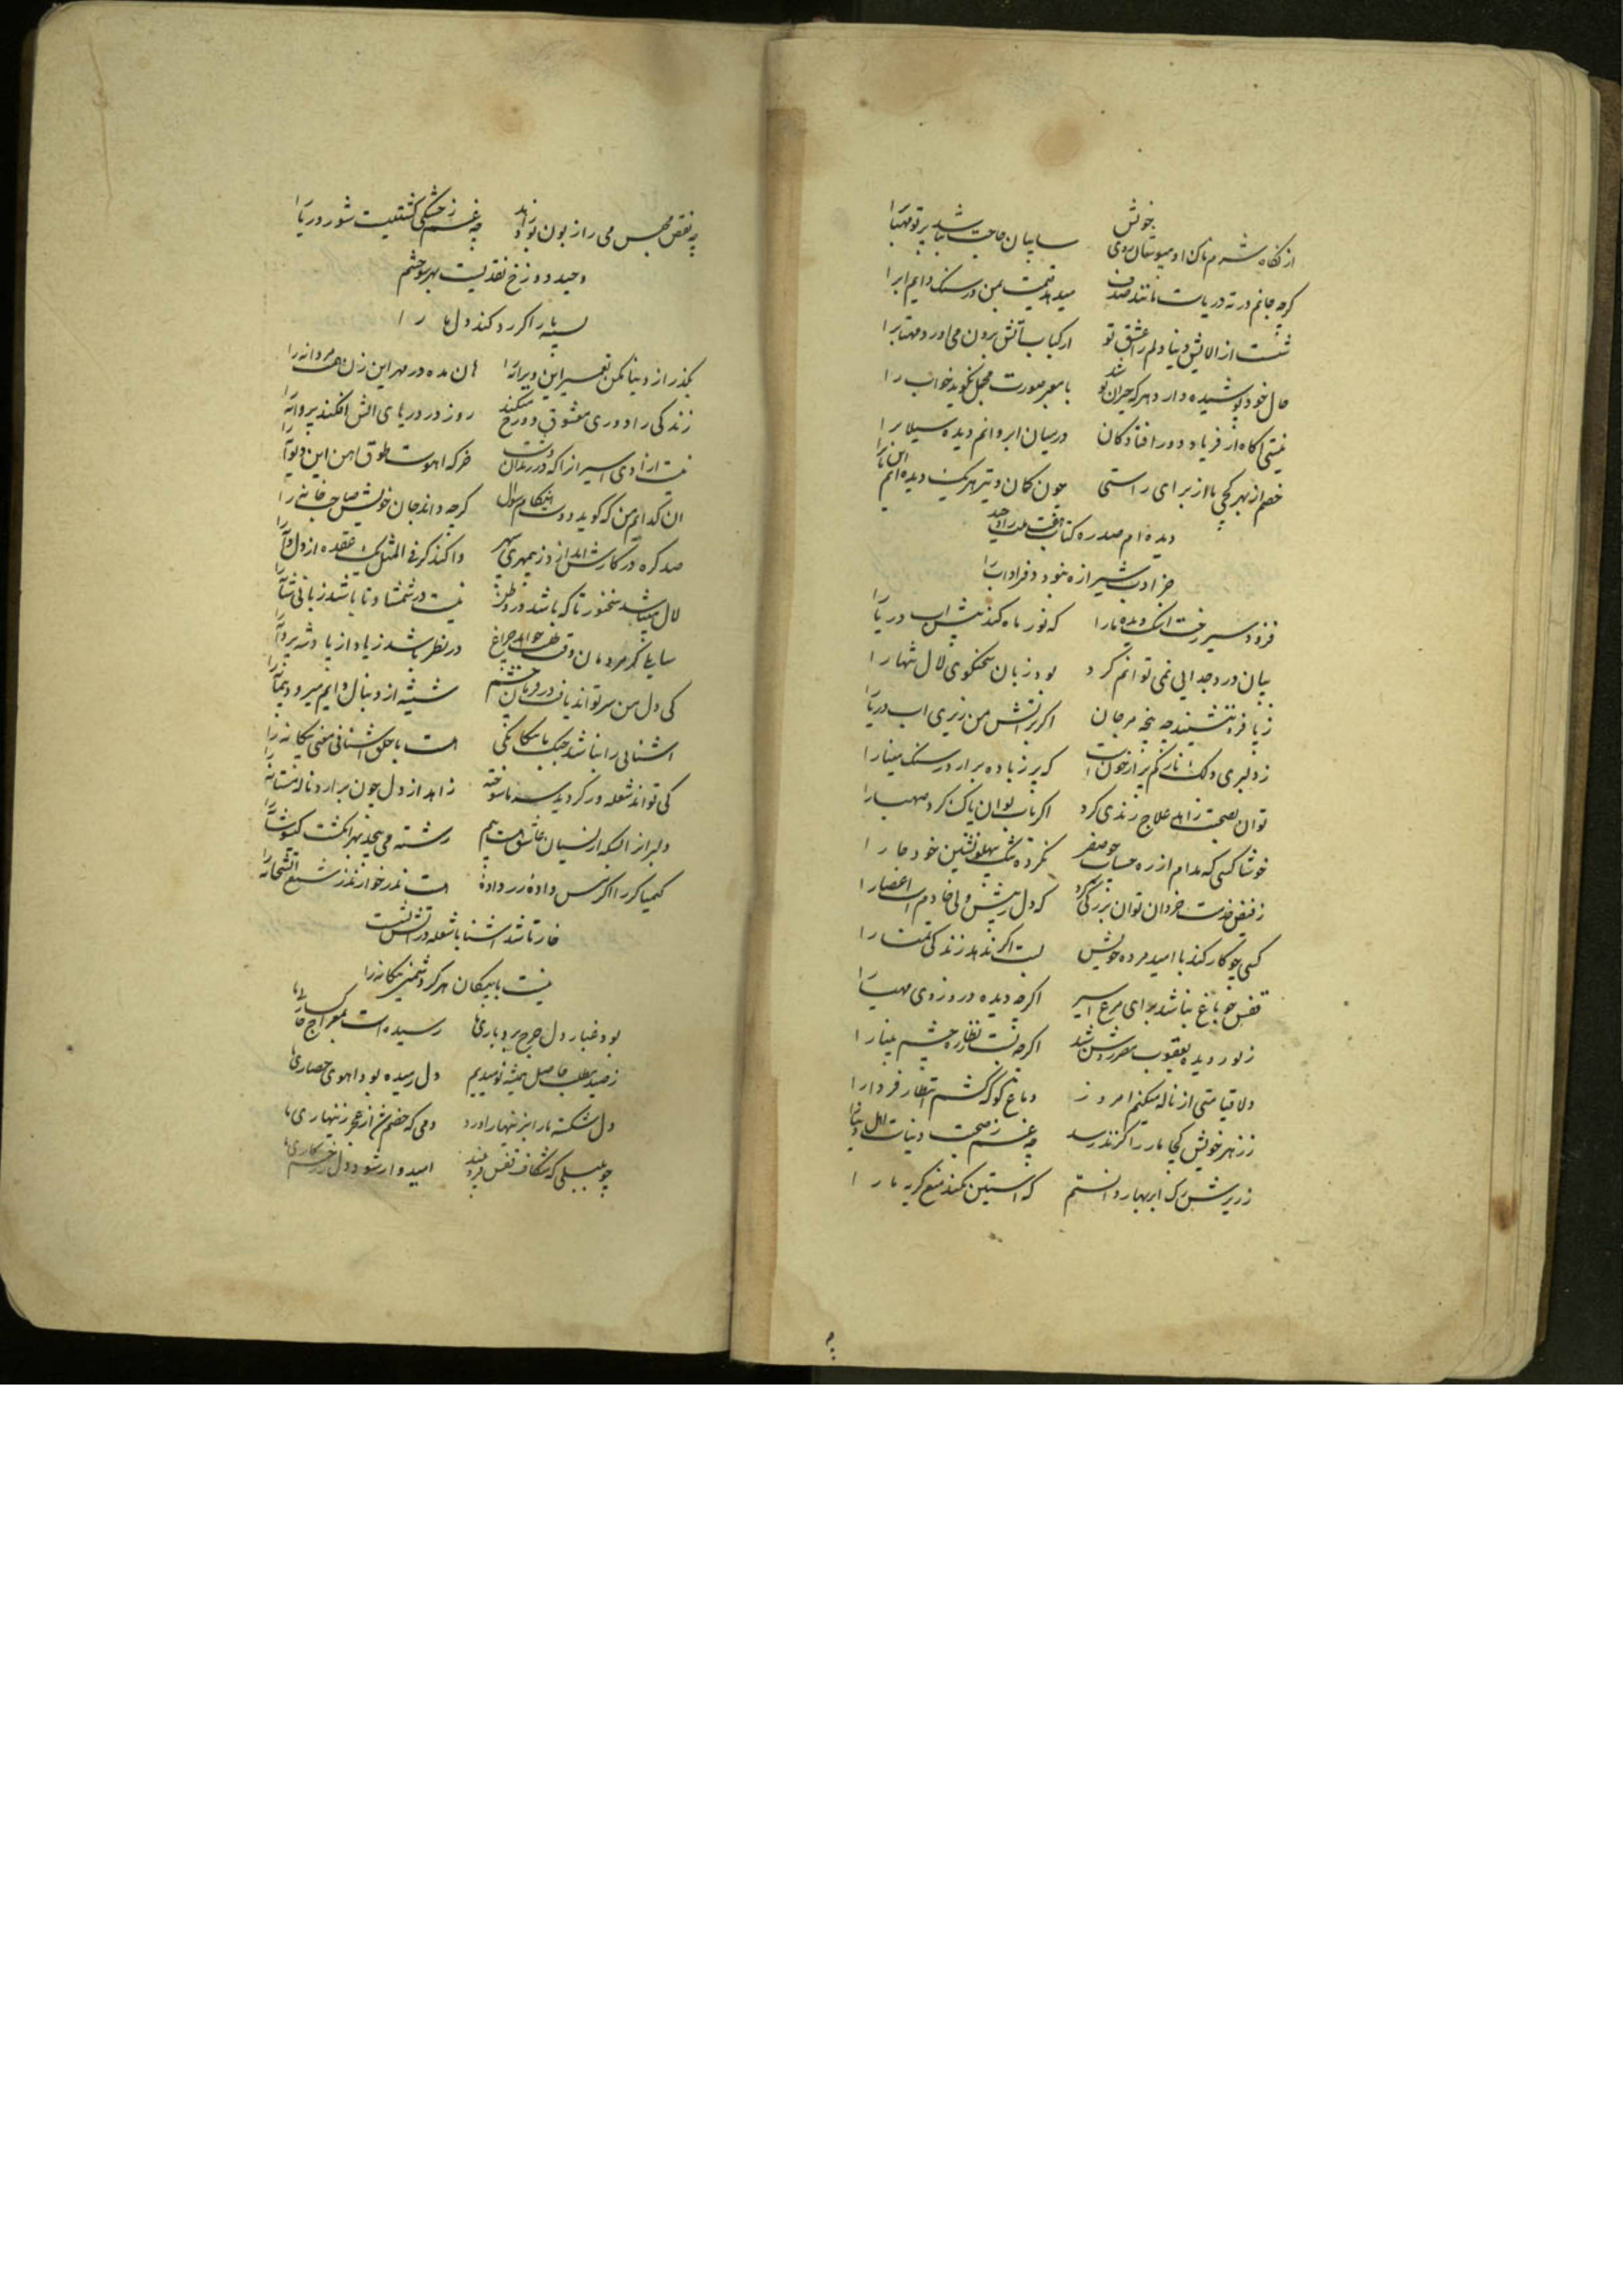 از نگاه شرم ناک او میوشان روی خویش سایبان حاجت نباشد پرتو مهتاب را
کرچه جانم در ته دریاست مانند صدف میدهد قیمت بمن در سنک دایم ابرا
شست از الایش دنیا دلم را عشق تو از کباب آتش برون می اورد مهتاب را
حال خود پوشیده دارد هر که حیران تو شد با معبر صورت مخمل نکوید خواب را
نیستی اکاه از فریاد دور افتادکان درمیان ابر وانم دیده سیلاب را
خصم از بهر کجی ما از برای راستی چون کمان و تیر هر یک دیده ایم این باب را
دیده ام صد ره کتاب هفت ملت را وحید
جز ادب شیرازه نبود دفر اداب را
فزود سیر رخت اشک دیده ما را که نور ماه کند بیش اب دریا را
بیان درد جدایی نمی توانم کرد بود زبان سخنکوی لال شبها را
ز پا فرو ننشیند چه پنجه مرجان اکر بر اتش من ریزی اب دریا را
ز دلبری دلک انار کم پر از خون است که پر ز باده برارد ز سنک مینا را
توان بصحبت زاهد علاج رندی کرد اکر باب توان پاک کرد صهبا را
خوشا کسی که مدام از ره حساب چو صفر نکرده تنک بپهلونشین خود جا را
ز فیض خدمت خردان توان بزرکی کرد که دل رییس ولی خادم است اعضا را
کسی چو کار کند با امید مرده خویش لبت اکر ندهد زندکی تمنا را
قفس چو باغ نباشد برای مرغ اسیر اکرچه دیده در و روزی مهیا را
ز نور دیده یعقوب مصر روشن شد اکرچه نیست نظاره چشم بینا را
دلا قیامتی از ناله میکنم امروز دماغ کو که کشم انتظار فردا را
ز زهر خویش کجا مار را کزند رسد چه غم ز صحبت دنیاست اهل دنیا را
ز ریزش رک ابر بهار دانستم که استین نکند منع کریه ما را
چه نقص مجلس می را ز بودن زاهد چه غم ز خشکی کشتیست شور دریا را
وحید دوزخ نقدیست بهر سوختنم
سپهر یار اکر رد کند دل ما را
بکذر از دنیا مکن تعمیر این ویرانه را هان مده در مهر این زن همت مردانه را
زندکی را دوری معشوق دوزخ میکند روز در دریای اتش افکند پروانه را
نیست ازادی اسیر انرا که در زندان تست خر که اهوست طوق اهن این دیوانه را
ان کدایم من که کوید دوست هنکام سوال کرچه داند جان خویش صاحب خانه را
صد کره در کارش اندازد ز بیمهری سپهر واکند کر فی المثل یک عقده از دل دانه را
لال میباشد سخنور تا که باشد در وطن نیست در شمشاد تا باشد زبانی شانه را
کی دل من سر تواند یافت در دوران چشم شیشه از دنبال دایم میرود پیمانه را
اشنایی را نباشد جنک با بیکانکی است با خلق اشنائی معنی بیکانه را
کی تواند شعله ور کردید سینه ناسوخته زاهد از دل چون برارد ناله مستانه را
دلبر از بسکه از نسیان عاشق است بیم رشته می پیچد بهر انکشت کیسو شانه را
کیمیا کر را اکر کس داده زر داده است نذر خوار نذر شمع اتشخانه را
خار تا شد اشنا با شعله در اتش نشست
نیست با بیکان هر کز دشمنی بیکانه را
بود غبار دل چرخ بردباری ها رسیده است بمعراج خاکساری ها
ز صید مطلب حاصل همیشه نومیدیم دل رمیده بود اهوی حصاری ها
دل شکسته ما را بزینهار اورد دمی که خصم شد از عجز زینهاری ها
چو بلبلی که شکاف قفس فزون بیند امیدوار شود دل ز زخم کاری ها